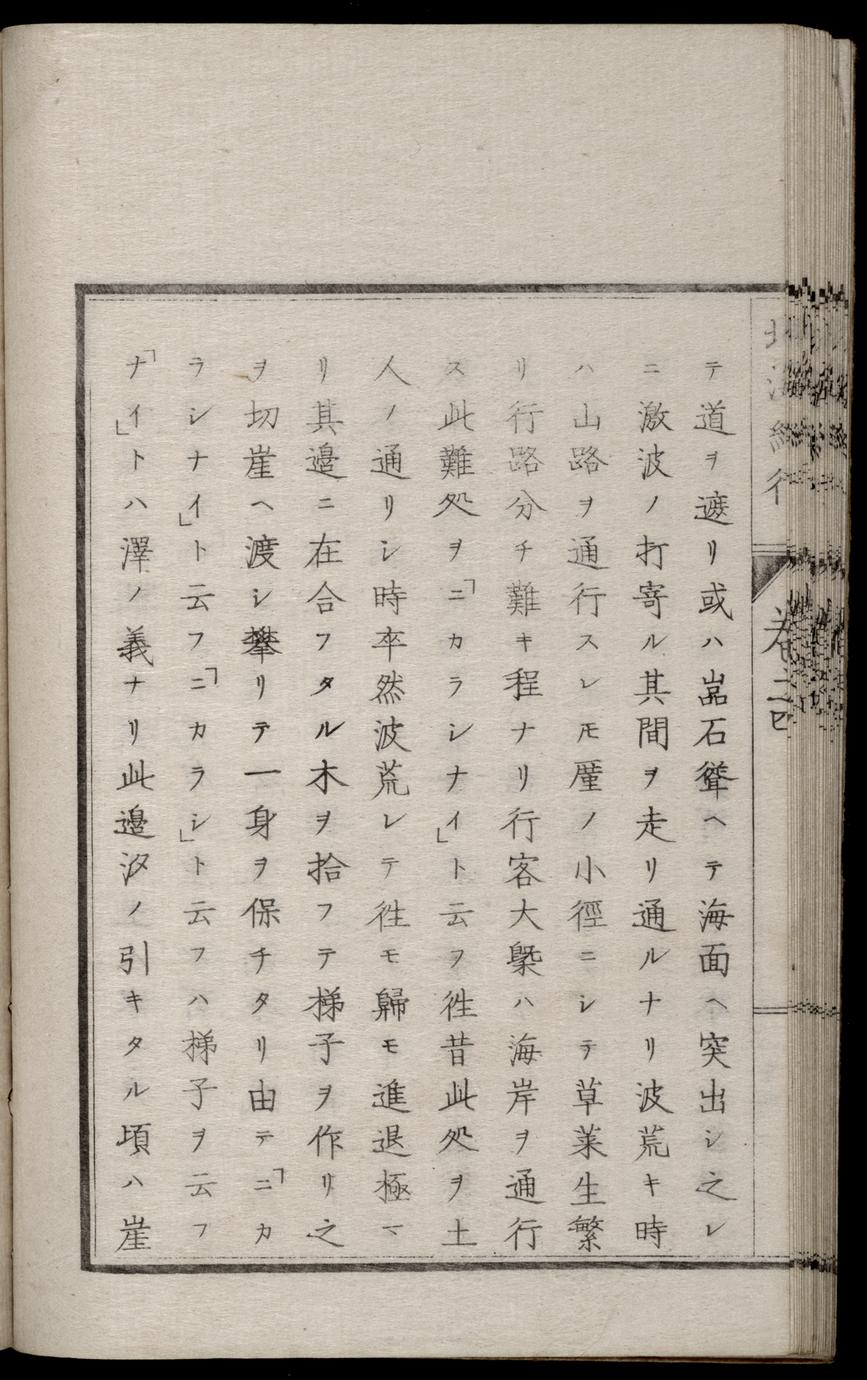 北海紀行
巻之四
テ道ヲ遮リ或ハ嵓石聳ヘテ海面ヘ突出シ之レ
ニ激波ノ打寄ル其間ヲ走リ通ルナリ波荒キ時
ハ山路ヲ通行スレ𪜈厓ノ小徑ニシテ草萊生繁
リ行路分チ難キ程ナリ行客大槩ハ海岸ヲ通行
ス此難処ヲ「ニカラシナイ」ト云ヲ徃昔此処ヲ土
人ノ通リシ時卒然波荒レテ徃モ歸モ進退極マ
リ其邉ニ在合フタル木ヲ拾フテ梯子ヲ作リ之
ヲ切崖ヘ渡シ攀リテ一身ヲ保チタリ由テ「ニカ
ラシナイ」ト云フ「ニカラシ」ト云フハ梯子ヲ云フ
「ナイ」トハ澤ノ義ナリ此邉汐ノ引キタル頃ハ崖